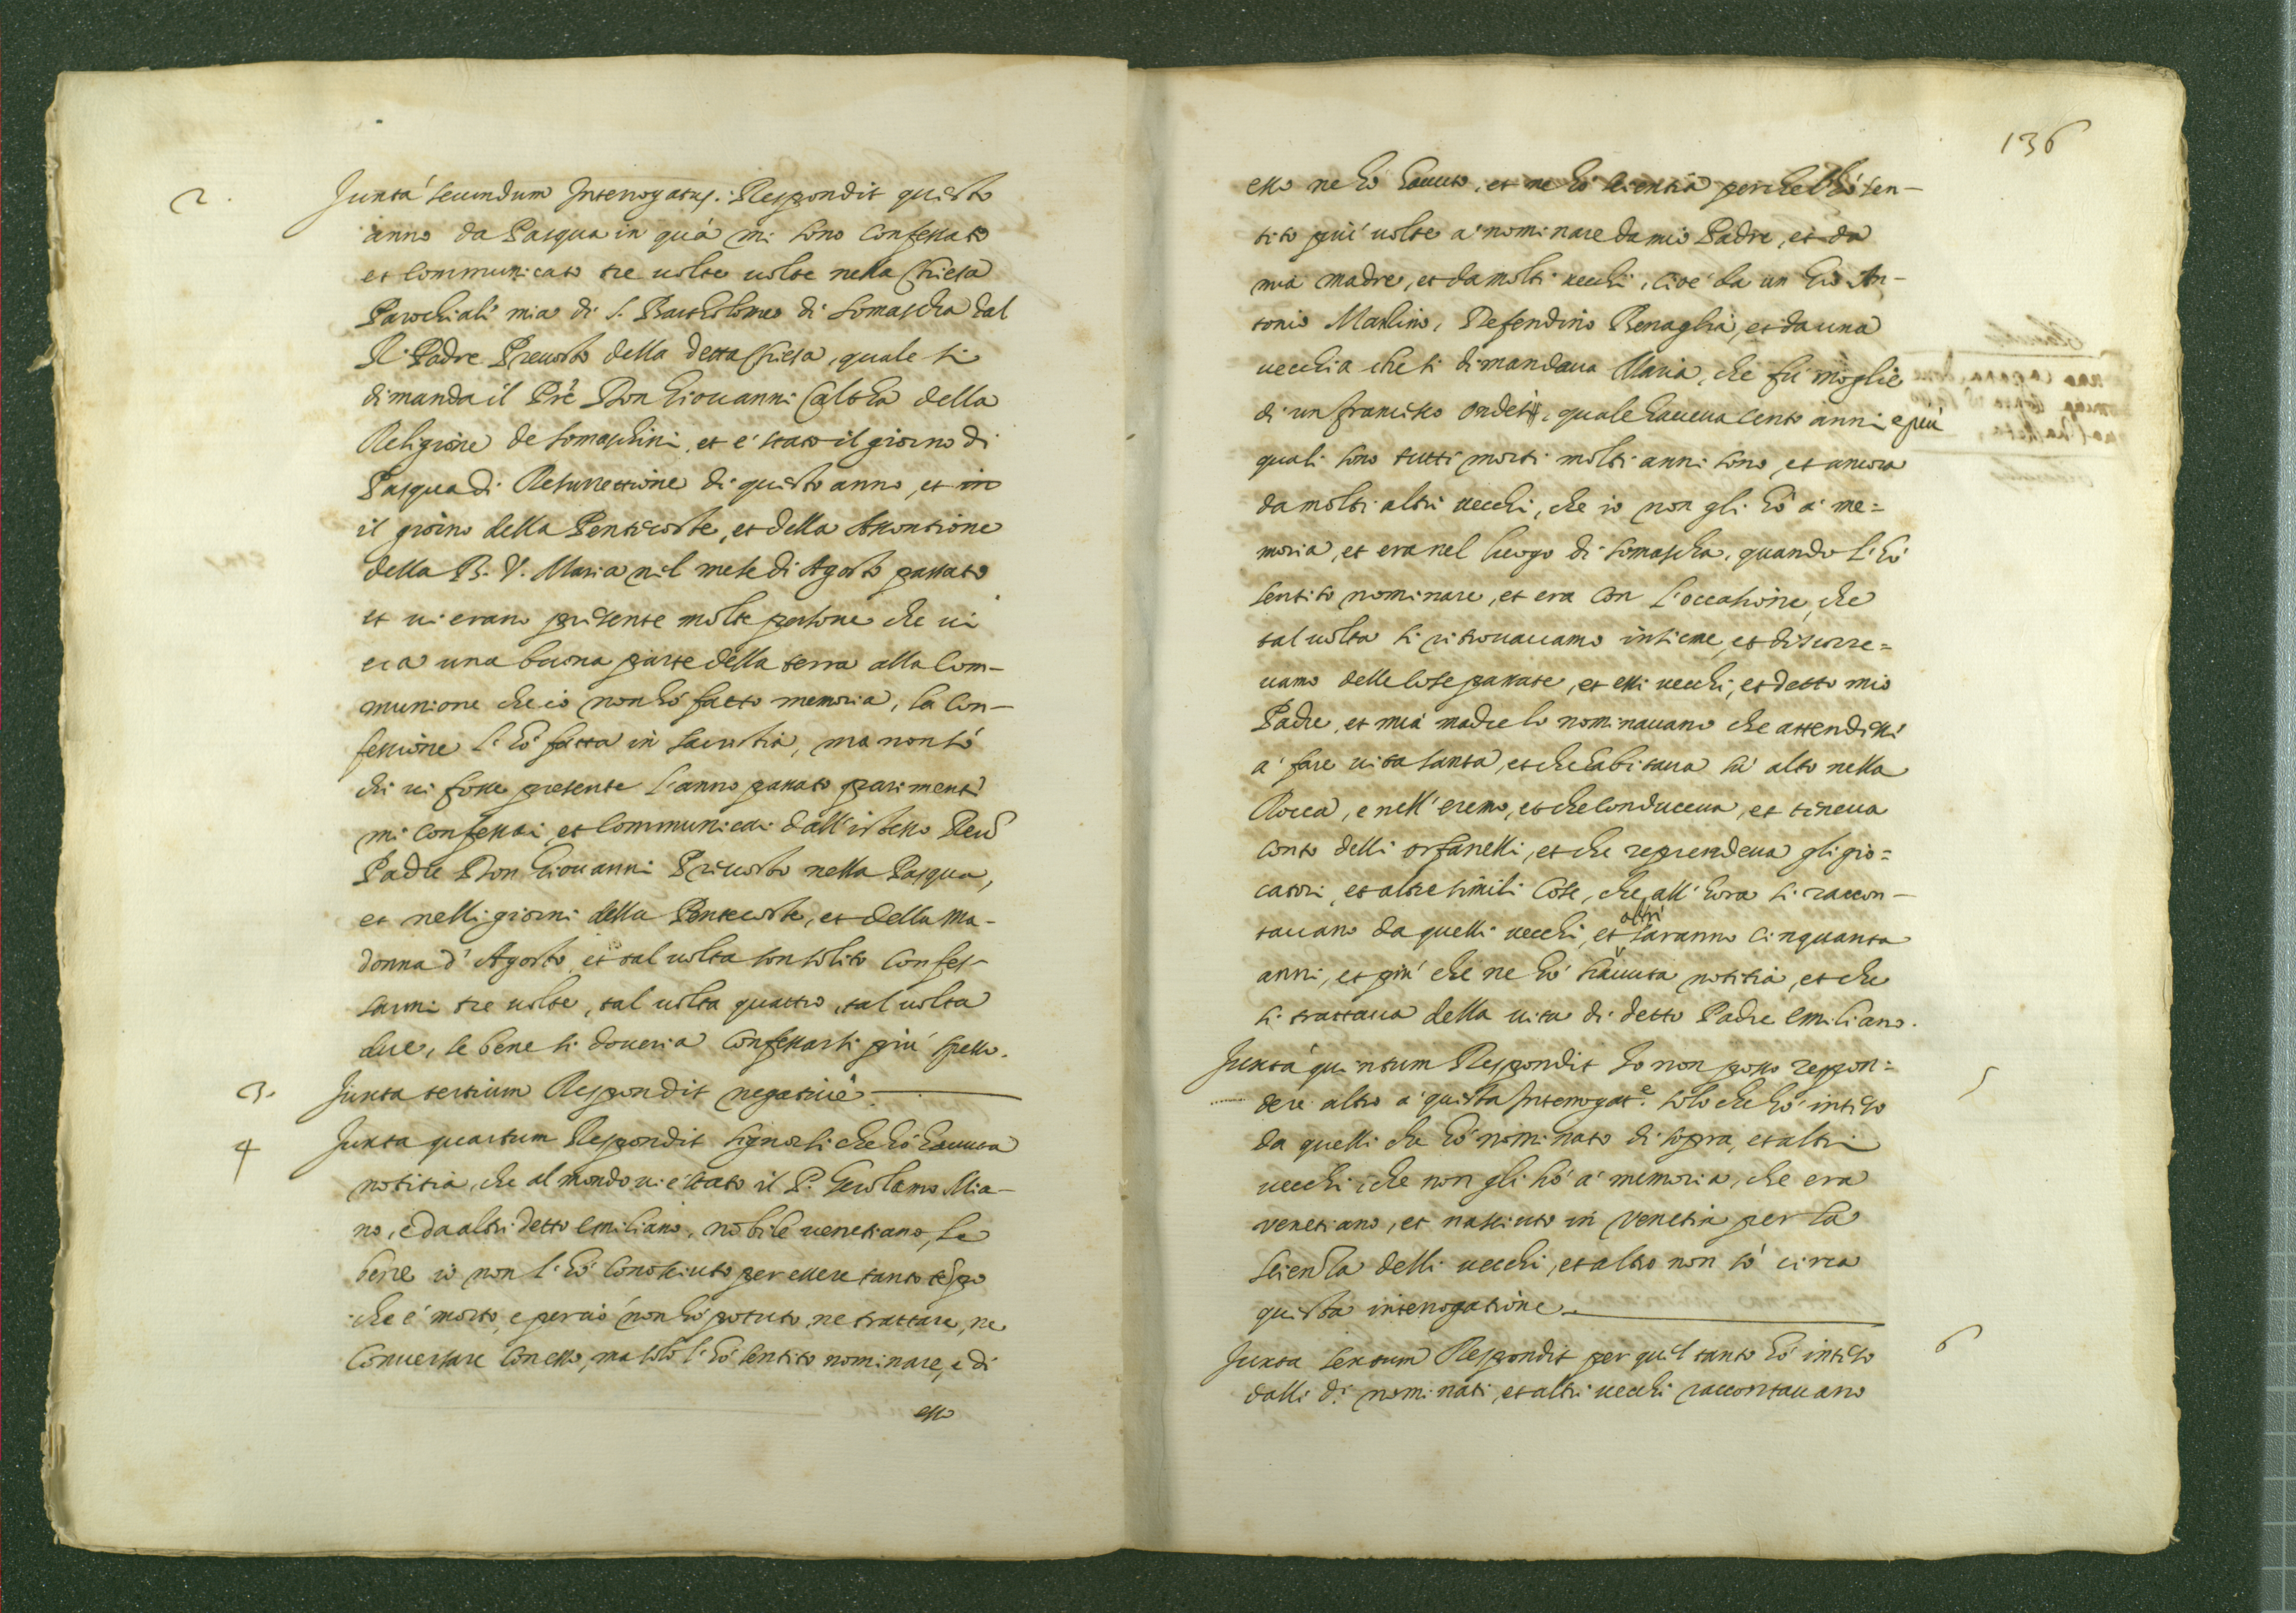 2.
Juxta secundum Interrogatus. Respondit questo
anno da Pasqua in quà mi sono confessato
et communicato tre uolte uolte nella Chiesa
Parochiali mia di S. Bartholomeo di Somascha dal
R. Padre Preuosto della detta Chiesa, quale si
dimanda il Prè Don Giouanni Calcha della
Religione de Somaschini, et è stato il giorno di
Pasqua di Resurrettione di questo anno, et in
il giorno della Pentecoste, et della Assontione
della B. V. Maria nel mese di Agosto passato
et ui erano presente molte persone che ui
era una buona parte della terra alla Com-
munione che io non hò fatto memoria, la Con-
fessione l'hò fatta in sacristia, ma non sò
chi ui fosse presente l'anno passato parimenti
mi confessai et communicai dall'istesso Reu.
Padre Don Giouanni Preuosto nella Pasqua,
et nelli giorni della Pentecoste, et della Ma-
donna d'Agosto, et tal uolta son solito confes-
sarmi tre uolte, tal uolta quattro, tal uolta
due, se bene si doueria confessarsi più spesso.
3. Juxta tertium Respondit negatiuè
4 Juxta quartum Respondit signor si che hò hauuta
notitia, che al mondo ui è stato il P. Gerolamo Mia-
no, e da altri detto Emiliano, nobile uenetiano, se
bene io non l'hò conosciuto per essere tanto tempo
che è morto, e perciò non hò potuto, ne trattare, ne
conuersare con esso, ma solo l'hò sentito nominare, e di
esso
136
esso ne hò hauuto, et ne hò scientia perche l'hò sen-
tito più uolte a nominare da mio Padre, et da
mia madre, et da molti uecchi, cioè da un Gio An-
tonio Mazlino, Defendino Benaglia, et da una
uecchia che si dimandaua Maria, che fù moglie
di un Francesco Ondei, quale haueua cento anni e più
quali sono tutti morti molti anni sono, et ancora
da molti altri uecchi, che io non gli hò à me=
moria, et era nel luogo di Somascha, quando l'hò
sentito nominare, et era con l'occasione, che
tal uolta si ritrouauamo insieme, et discorre=
uamo delle cose passate, et essi uecchi, et detto mio
Padre, et mia madre lo nominauano che attendessi
a fare uita santa, et che habitaua sù alto nella
Rocca, e nell'eremo, et che conduceua, et teneua
conto delli orfanelli, et che reprendeua gli gio=
catori, et altre simili cose, che all'hora si raccon-
tauano da quelli uecchi, et altri saranno cinquanta
anni, et più che ne hò hauuta notitia, et che
si trattaua della uita di detto Padre Emiliano.
Juxta quintum Respondit Io non posso respon= 5
dere altro a questa Interrogat.e solo che hò inteso
da quelli che hò nominato di sopra, et altri
uecchi, che non gli hò à memoria, che era
venetiano, et nasciuto in Venetia per la
scienza delli uecchi, et altro non sò circa
questa interrogatione
Juxta sextum Respondit per quel tanto hò inteso 6
dalli d.i nominati, et altri uecchi raccontauano